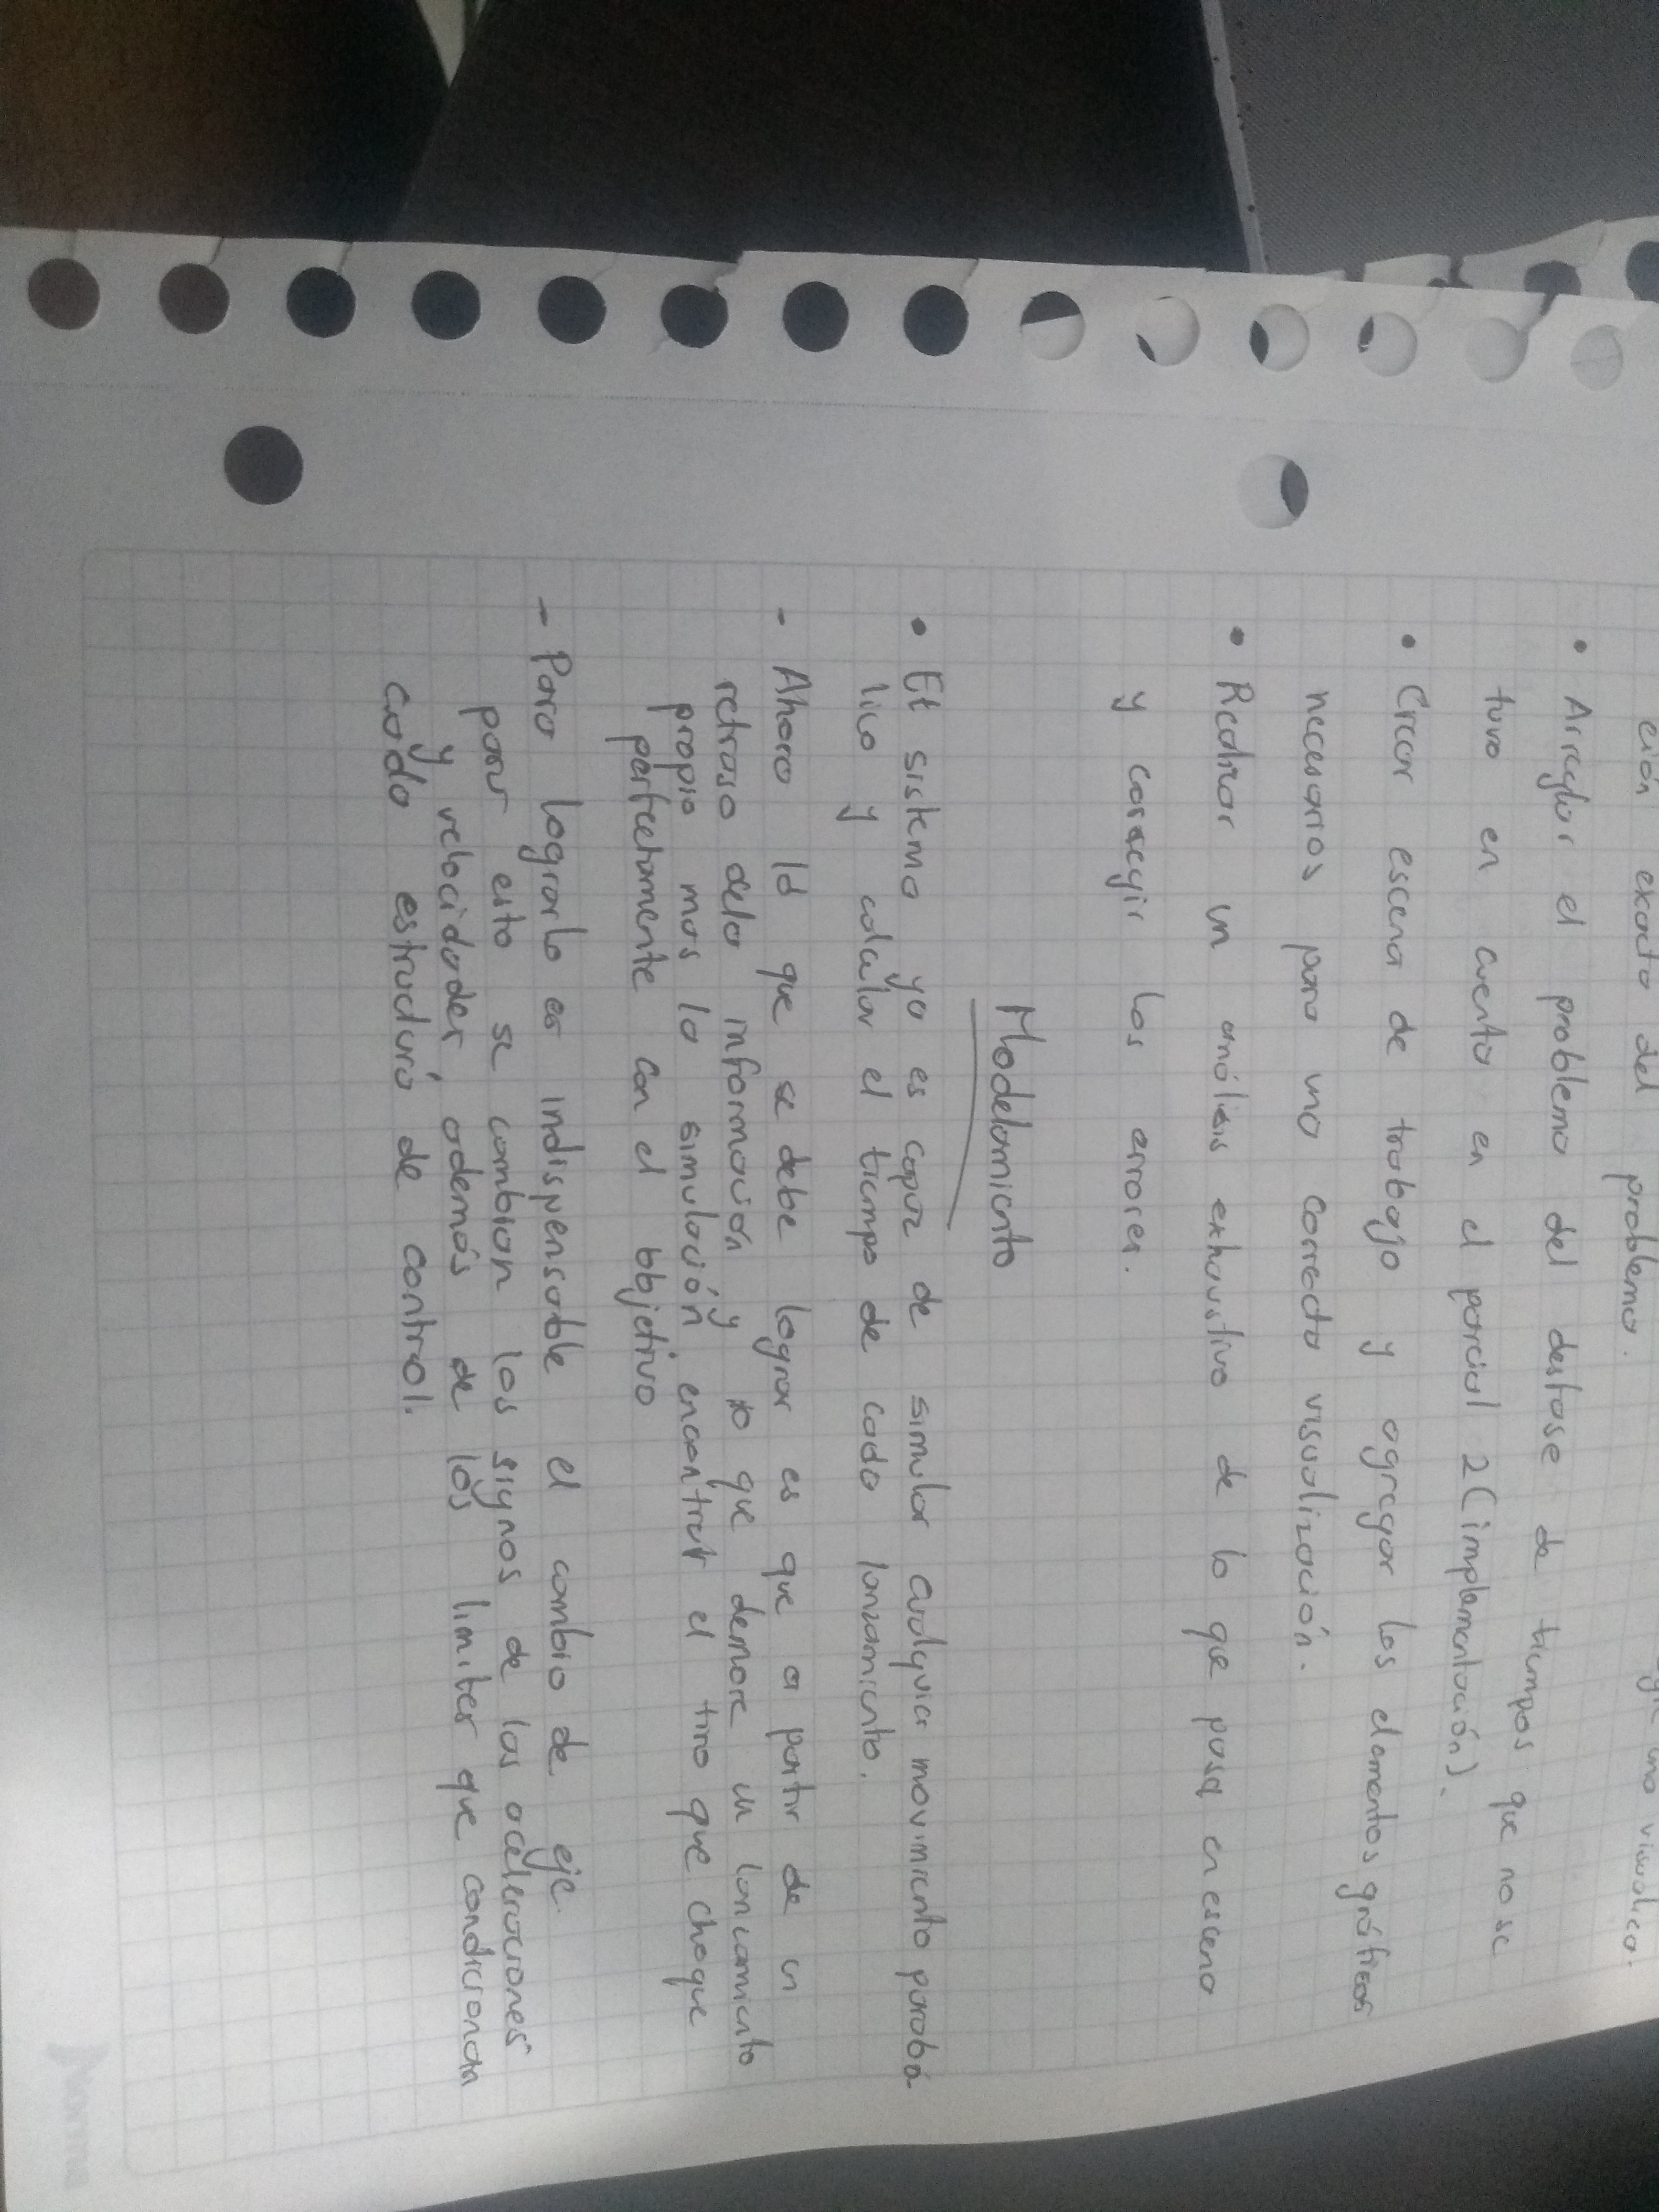 una visualiza-
ción exacta del problema.
• Arreglar el problema del desfase de tiempos que no se
tuvo en cuenta en el parcial 2 (implementación).
• Crear escena de trabajo y agregar los elementos gráficos
necesarios para una correcta visualización.
• Realizar un análisis exhaustivo de lo que pasa en escena
y coracgir los errores.
Modelamiento
• El sistema ya es capaz de simular cualquier movimiento parabó
lico y calcular el tiempo de cada lanzamiento.
- Ahora lo que se debe lograr es que a partir de un
retraso dela información y lo que demore un lanzamiento
propio mas la simulación encontrar el tiro que choque
perfectamente con el objetivo
- Para lograrlo es indispensable el cambio de eje
para esto se cambian los signos de las aceleraciones
y velocidades, además de los limites que condicionan
cada estructura de control.
Norma